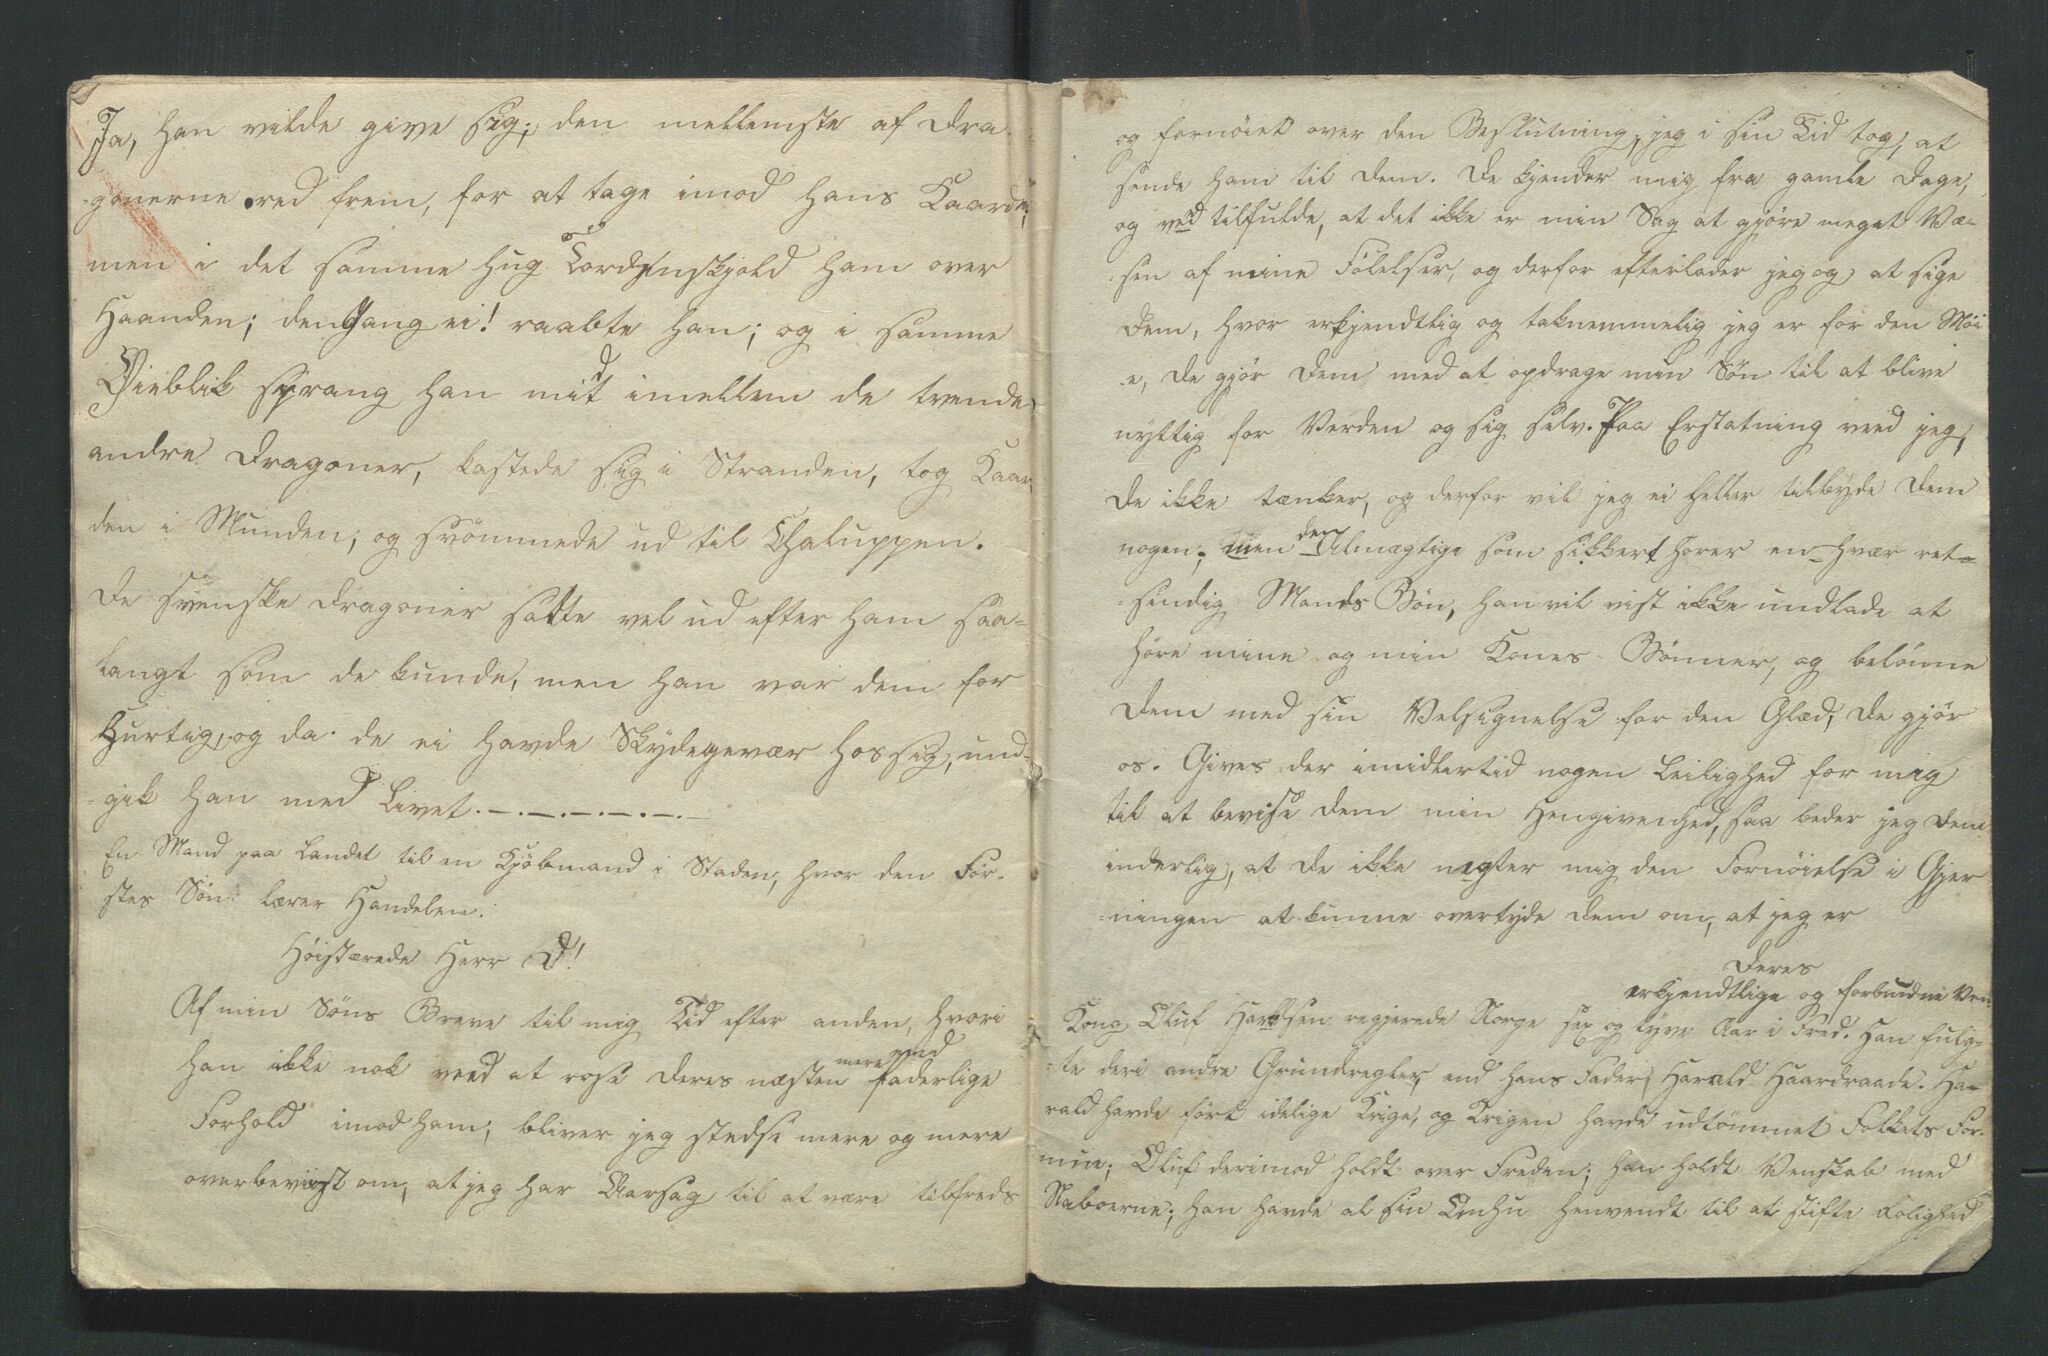 Ja, han vilde give sig; den mellemste af Dra-
gonerne red frem, for at tage imod hans Kaarde,
men i det samme hug Tordenskjold ham over
Haanden; dengang ei! raabte han; og i samme
Øieblik sprang han midt imellem de trende
andre Dragoner, kastede sig i Stranden, tog Kaar
den i Munden, og svömmede ud til Chaluppen.
De svenske Dragoner satte vel ud efter ham saa-
langt som de kunde, men han var dem for
Hurtig, og da de ei havde Skydegevær hos sig, und-
gik han med Livet.
En Mand paa Landet til en Kjöbmand i Staden, hvor den För-
stes Sön lærer Handelen.
Höistærede Herr D!
Af min Söns Breve til mig Tid efter anden, hvori
han ikke nok veed at rose Deres næsten mere end faderlige
Forhold imod ham, bliver jeg stedse mere og mere
overbeviist om, at jeg har Aarsag til at være tilfreds
og fornöiet over den Beslutning, jeg i sin Tid tog, at
sende ham til Dem. De kjender mig fra gamle Dage,
og veed tilfulde, at det ikke er min Sag at gjöre meget Væ-
sen af mine Fölelser, og derfor efterlader jeg og at sige
Dem, hvor erkjendtlig og taknemmelig jeg er for den Möi
e, De gjör Dem med at opdrage min Sön til at blive
nyttig for Verden og sig selv. Paa Erstatning veed jeg,
De ikke tænker, og derfor vil jeg ei heller tilbyde Dem
nogen; men den Almægtige som sikkert horer en hvær ret-
sindig Mands Bön, han vil vist ikke undlade at
höre mine og min Kones Bönner, og belönne
Dem med sin Velsignelse for den Glæd, De gjör
os. Gives der imidlertid nogen Leilighed for mig
til at bevise Dem min Hengivenhed, saa beder jeg Dem
inderlig, at De ikke negter mig den Fornöielse i Gjer
ningen at kunne overtyde Dem om, at jeg er
Deres
erkjendtlige og forbundne Ven
Kong Oluf Haraldsen regjerede Norge sex og tyve Aar i Fred. Han fulg-
te deri andre Grundregler, end hans Fader Harald Haardraade. Ha-
rald havde fört idelige Krige, og Krigen havde udtömmet Folkets For-
mue; Oluf derimod holdt over Freden; han holdt Venskab med
Naboerne; han havde al sin Omhu henvendt til at stifte Rolighed